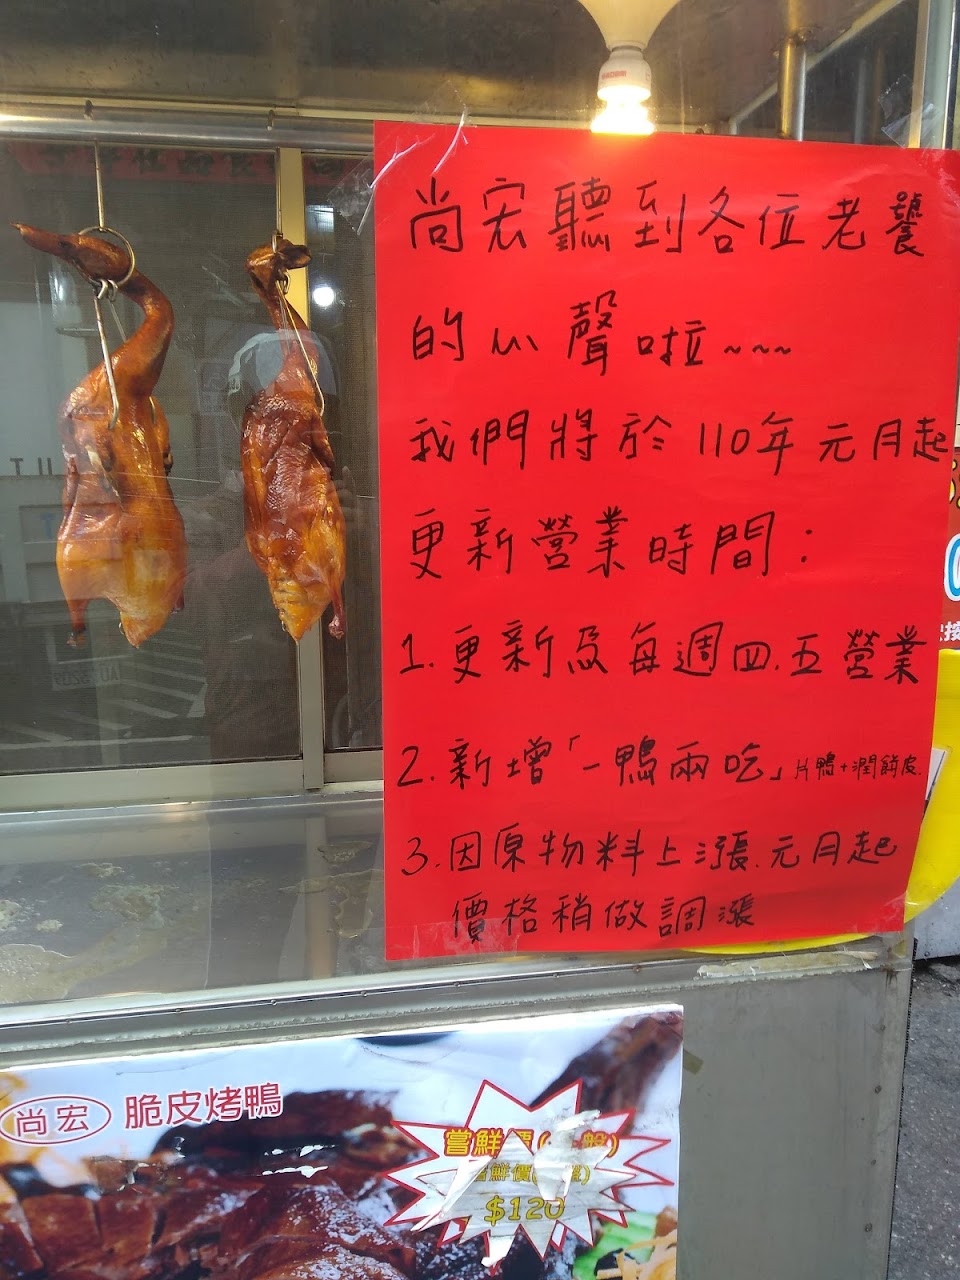 尚宏聽到各位老饕
的心聲啦~~~
我們將於110年元月起
更新營業時間：
1.更新為每週四.五營業
2.新增「一鴨兩吃」片鴨+潤餅皮.
3.因原物料上漲.元月起
價格稍做調漲
尚宏 脆皮烤鴨
嘗鮮
嘗鮮價
$120